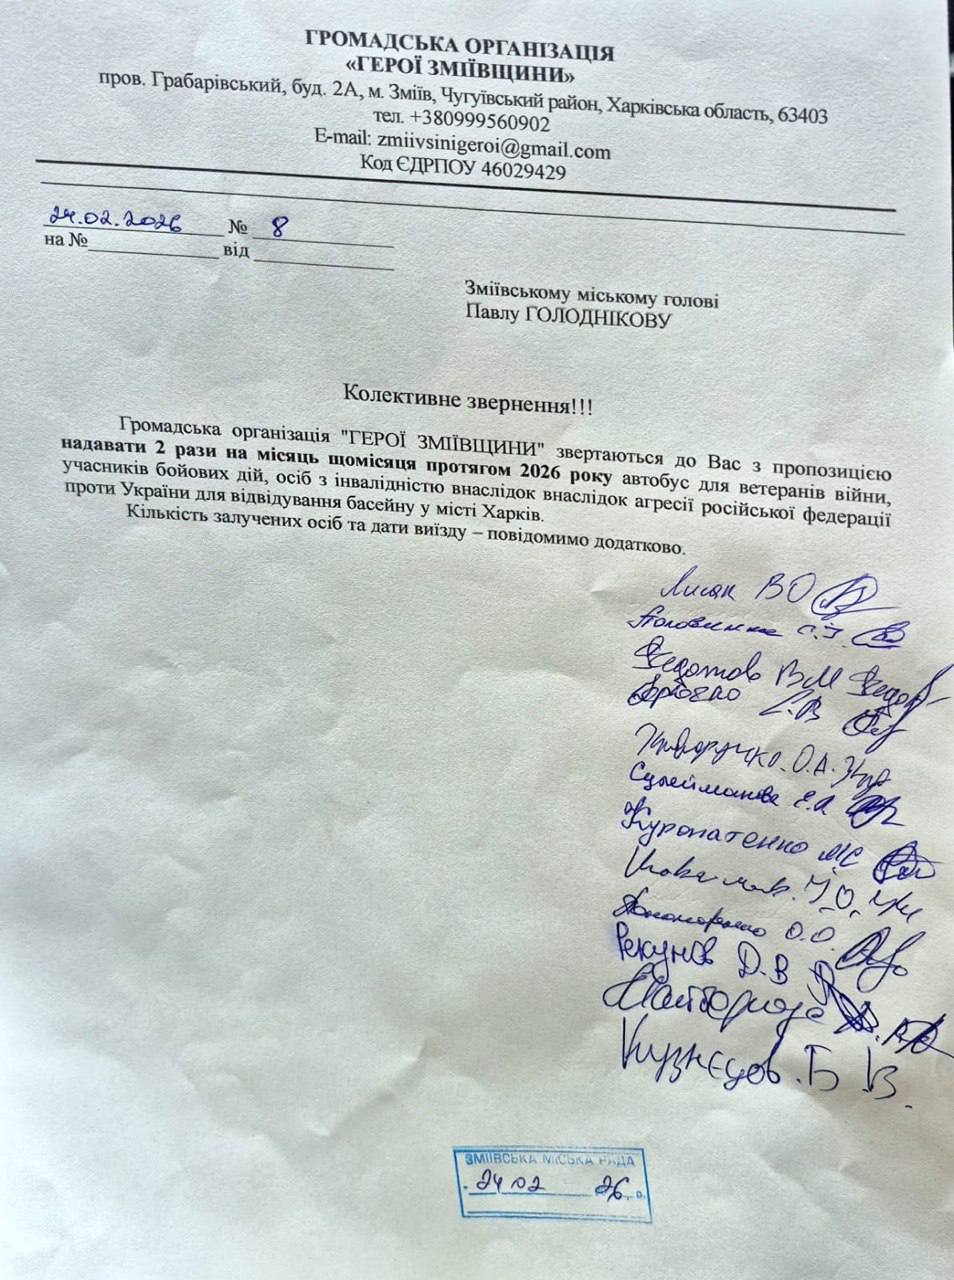 ГРОМАДСЬКА ОРГАНІЗАЦІЯ
«ГЕРОЇ ЗМІЇВЩИНИ»
пров. Грабарівський, буд. 2А, м. Зміїв, Чугуївський район, Харківська область, 63403
тел. +380999560902
E-mail: zmiivsinigeroi@gmail.com
Код ЄДРПОУ 46029429
24.02.2026 № 8
на № від
Зміївському міському голові
Павлу ГОЛОДНІКОВУ
Колективне звернення!!!
Громадська організація "ГЕРОЇ ЗМІЇВЩИНИ" звертаються до Вас з пропозицією
надавати 2 рази на місяць щомісяця протягом 2026 року автобус для ветеранів війни,
учасників бойових дій, осіб з інвалідністю внаслідок внаслідок агресії російської федерації
проти України для відвідування басейну у місті Харків.
Кількість залучених осіб та дати виїзду – повідомимо додатково.
Лисак ВО
Половинка
Федотов ВМ
С.В
О.А.
Сулейманова Є.А
Куропатенко МС
О.О.
Рекунов Д.В
Кузнєцов. Б В.
ЗМІЇВСЬКА МІСЬКА РАДА
24 02 26 р.